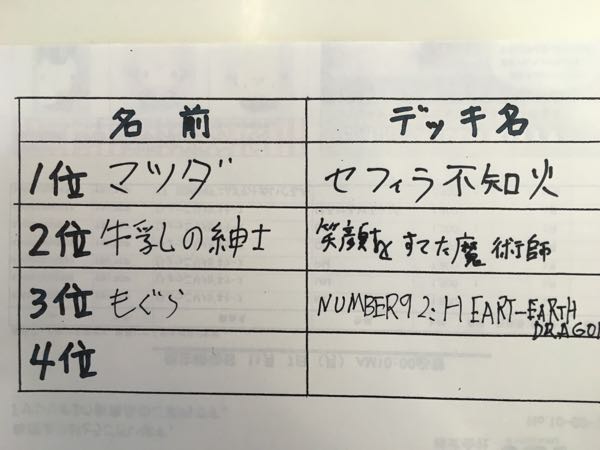 名前 デッキ名
1位 マツダ セフィラ不知火
2位 牛乳の紳士 笑顔をすてた魔術師
3位 もぐら NUMBER92:HEART-EARTH
DRAGO
4位